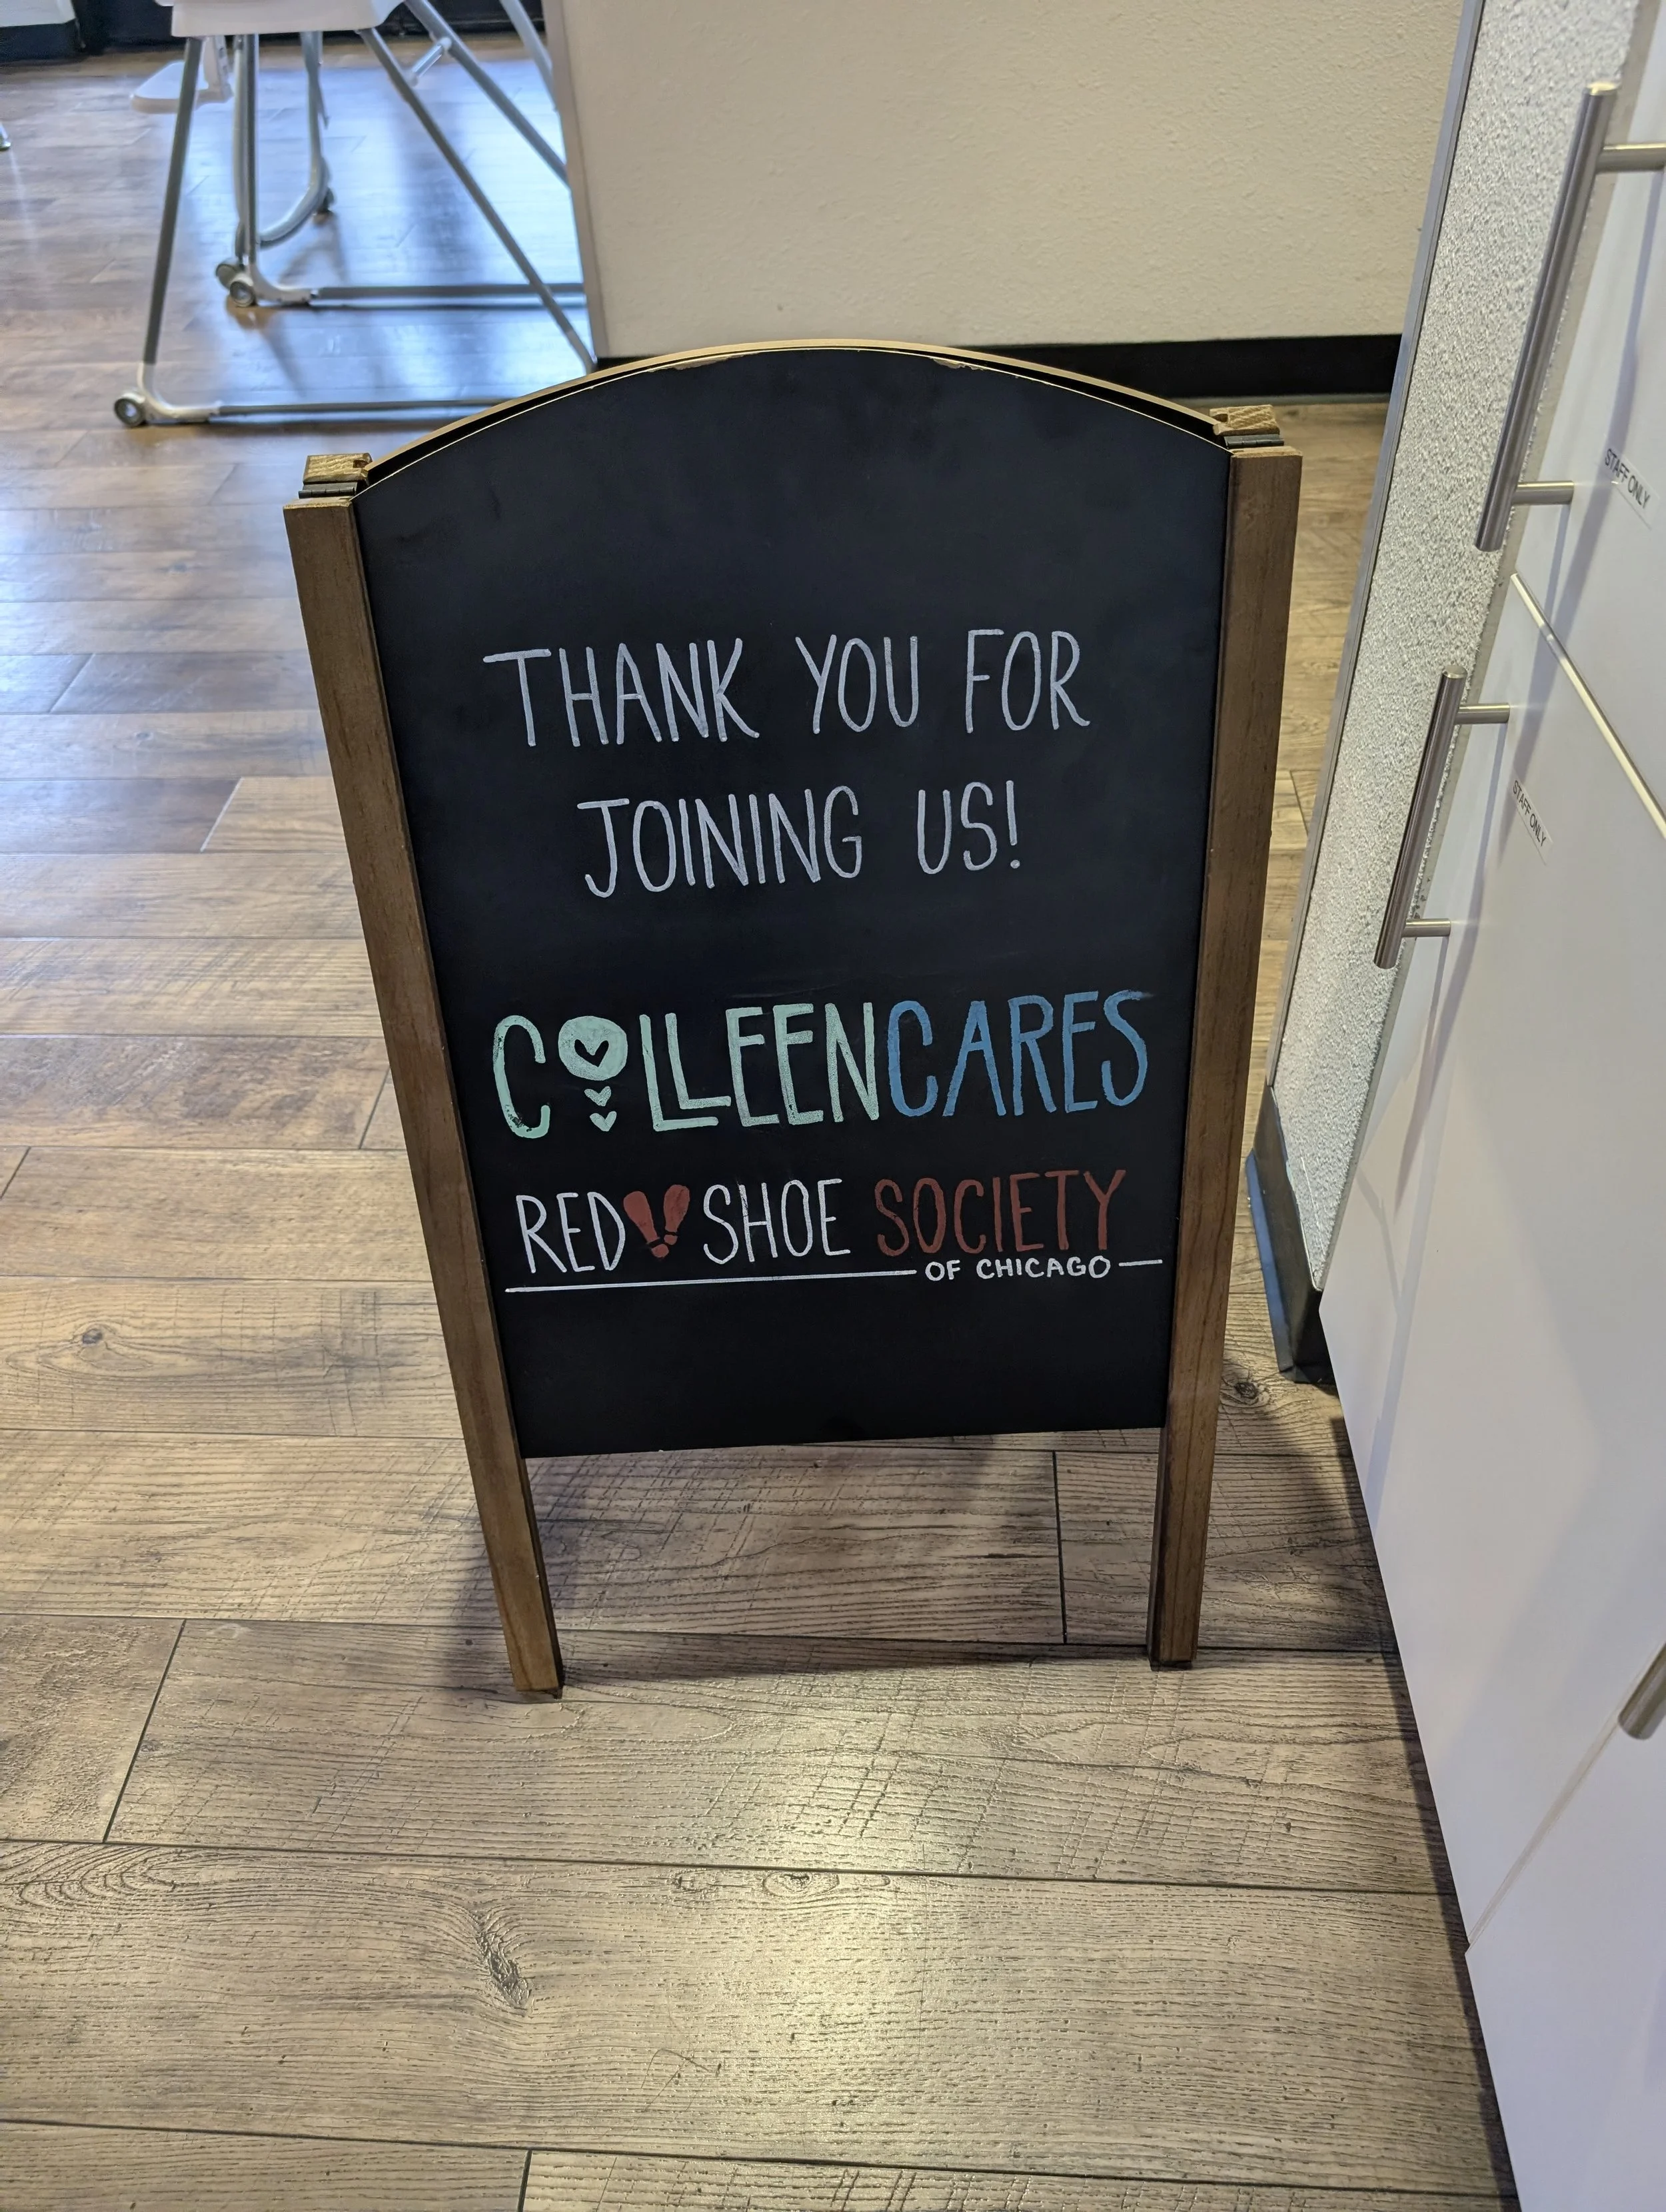 THANK YOU FOR
JOINING US!
COLLEENCARES
RED SHOE SOCIETY
OF CHICAGO
STAFF ONLY
STAFF ONLY